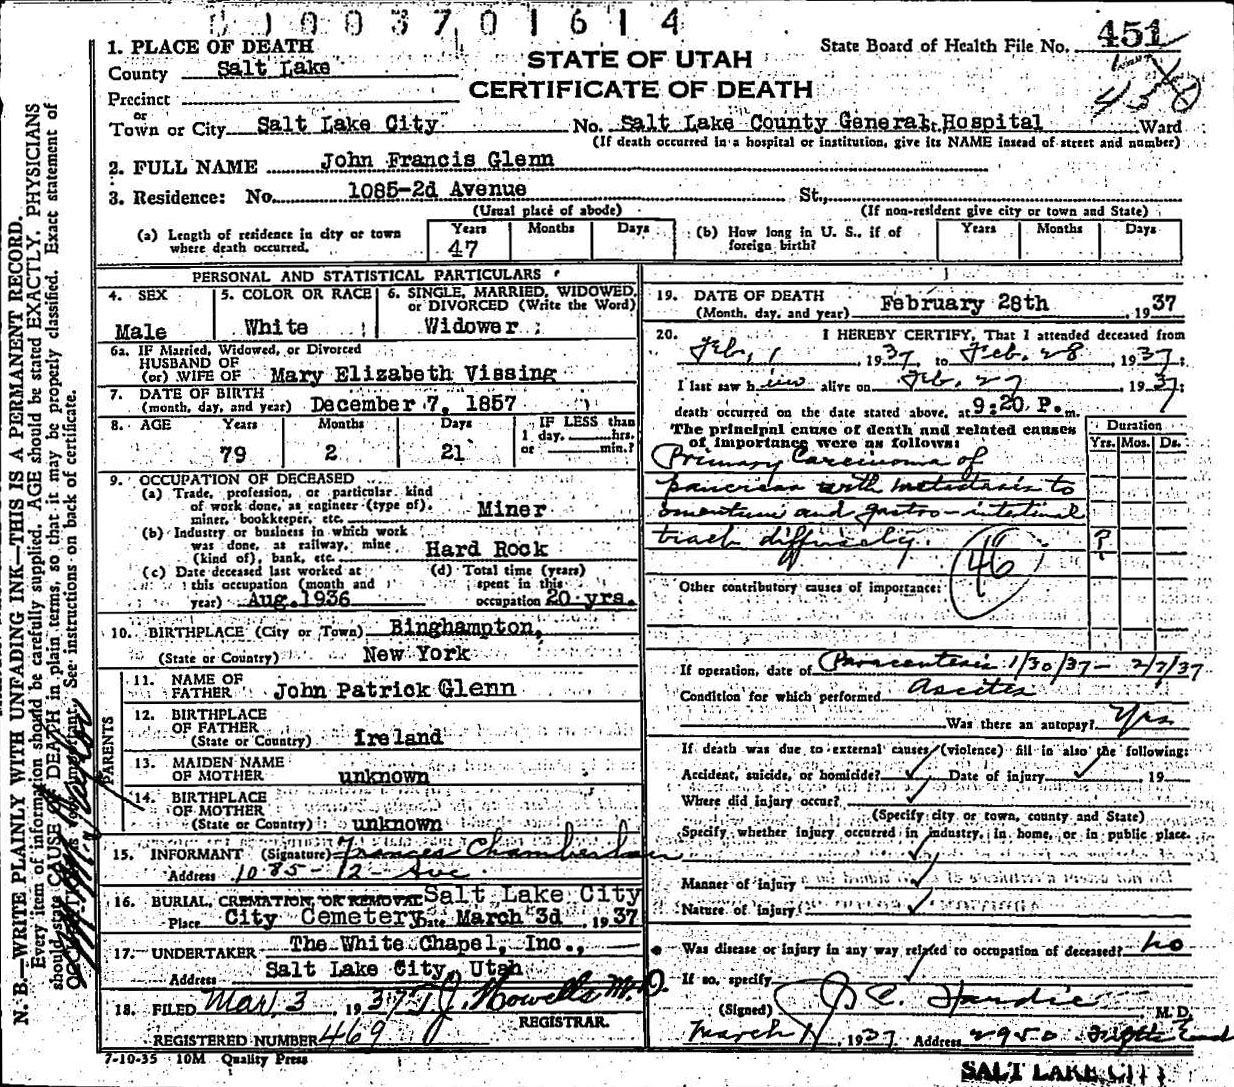 D1003701614
1. PLACE OF DEATH
County Salt Lake
STATE OF UTAH
CERTIFICATE OF DEATH
State Board of Health File No. 451
458
Precinct
or
Town or City Salt Lake City No. Salt Lake County General Hospital St. Ward
(If death occurred in a hospital or institution, give its NAME insead of street and number)
2. FULL NAME John Francis Glenn
3. Residence: No. 1085-2d Avenue St.,
(Usual place of abode) (If non-resident give city or town and State)
(a) Length of residence in city or town where death occurred. Years 47 Months Days
(b) How long in U. S., if of foreign birth? Years Months Days
PERSONAL AND STATISTICAL PARTICULARS
4. SEX Male
5. COLOR OR RACE White
6. SINGLE, MARRIED, WIDOWED, or DIVORCED (Write the Word) Widower
6a. IF Married, Widowed, or Divorced
HUSBAND OF
(or) WIFE OF Mary Elizabeth Vissing
7. DATE OF BIRTH
(month, day, and year) December 7, 1857
8. AGE Years 79 Months 2 Days 21 IF LESS than 1 day, hrs. or min.?
9. OCCUPATION OF DECEASED
(a) Trade, profession, or particular kind
of work done, as engineer (type of),
miner, bookkeeper, etc. Miner
(b) Industry or business in which work
was done, as railway, mine
(kind of), bank, etc. Hard Rock
(c) Date deceased last worked at
this occupation (month and
year) Aug. 1936
(d) Total time (years)
spent in this
occupation 20 yrs.
10. BIRTHPLACE (City or Town) Binghampton,
(State or Country) New York
PARENTS
11. NAME OF
FATHER John Patrick Glenn
12. BIRTHPLACE
OF FATHER
(State or Country) Ireland
13. MAIDEN NAME
OF MOTHER unknown
14. BIRTHPLACE
OF MOTHER
(State or Country) unknown
15. INFORMANT (Signature) Frances Chamberlain
Address 1085-12-Ave
16. BURIAL, CREMATION, OR REMOVAL Salt Lake City
Place City Cemetery Date March 3d, 1937
17. UNDERTAKER The White Chapel, Inc.,
Address Salt Lake City, Utah
18. FILED Mar 3 1937 T.J. Howells M.D.
REGISTRAR.
REGISTERED NUMBER 469
7-10-35 10M Quality Press
19. DATE OF DEATH
(Month, day, and year) February 28th, 1937
20. I HEREBY CERTIFY, That I attended deceased from
Feb. 1 1937 to Feb. 28 1937;
I last saw him alive on Feb. 27, 1937;
death occurred on the date stated above, at 9:20 P. m.
The principal cause of death and related causes
of importance were as follows:
Duration
Yrs. Mos. Ds.
Primary Carcinoma of
pancreas with metastasis to
omentum and gastro-intestinal
track diffusely. ?
46
Other contributory causes of importance:
If operation, date of Paracentesis 1/30/37 - 2/7/37
Condition for which performed Ascites
Was there an autopsy? Yes
If death was due to external causes (violence) fill in also the following:
Accident, suicide, or homicide? Date of injury 19
Where did injury occur?
(Specify city or town, county and State)
Specify whether injury occurred in industry, in home, or in public place.
Manner of injury
Nature of injury
Was disease or injury in any way related to occupation of deceased? no
If so, specify
(Signed) J C. Hardie M.D.
March 1, 1937 Address 2950
SALT LAKE CITY
N. B.—WRITE PLAINLY WITH UNFADING INK—THIS IS A PERMANENT RECORD.
Every item of information should be carefully supplied. AGE should be stated EXACTLY. PHYSICIANS
should state CAUSE OF DEATH in plain terms, so that it may be properly classified. Exact statement of
OCCUPATION is very important. See instructions on back of certificate.